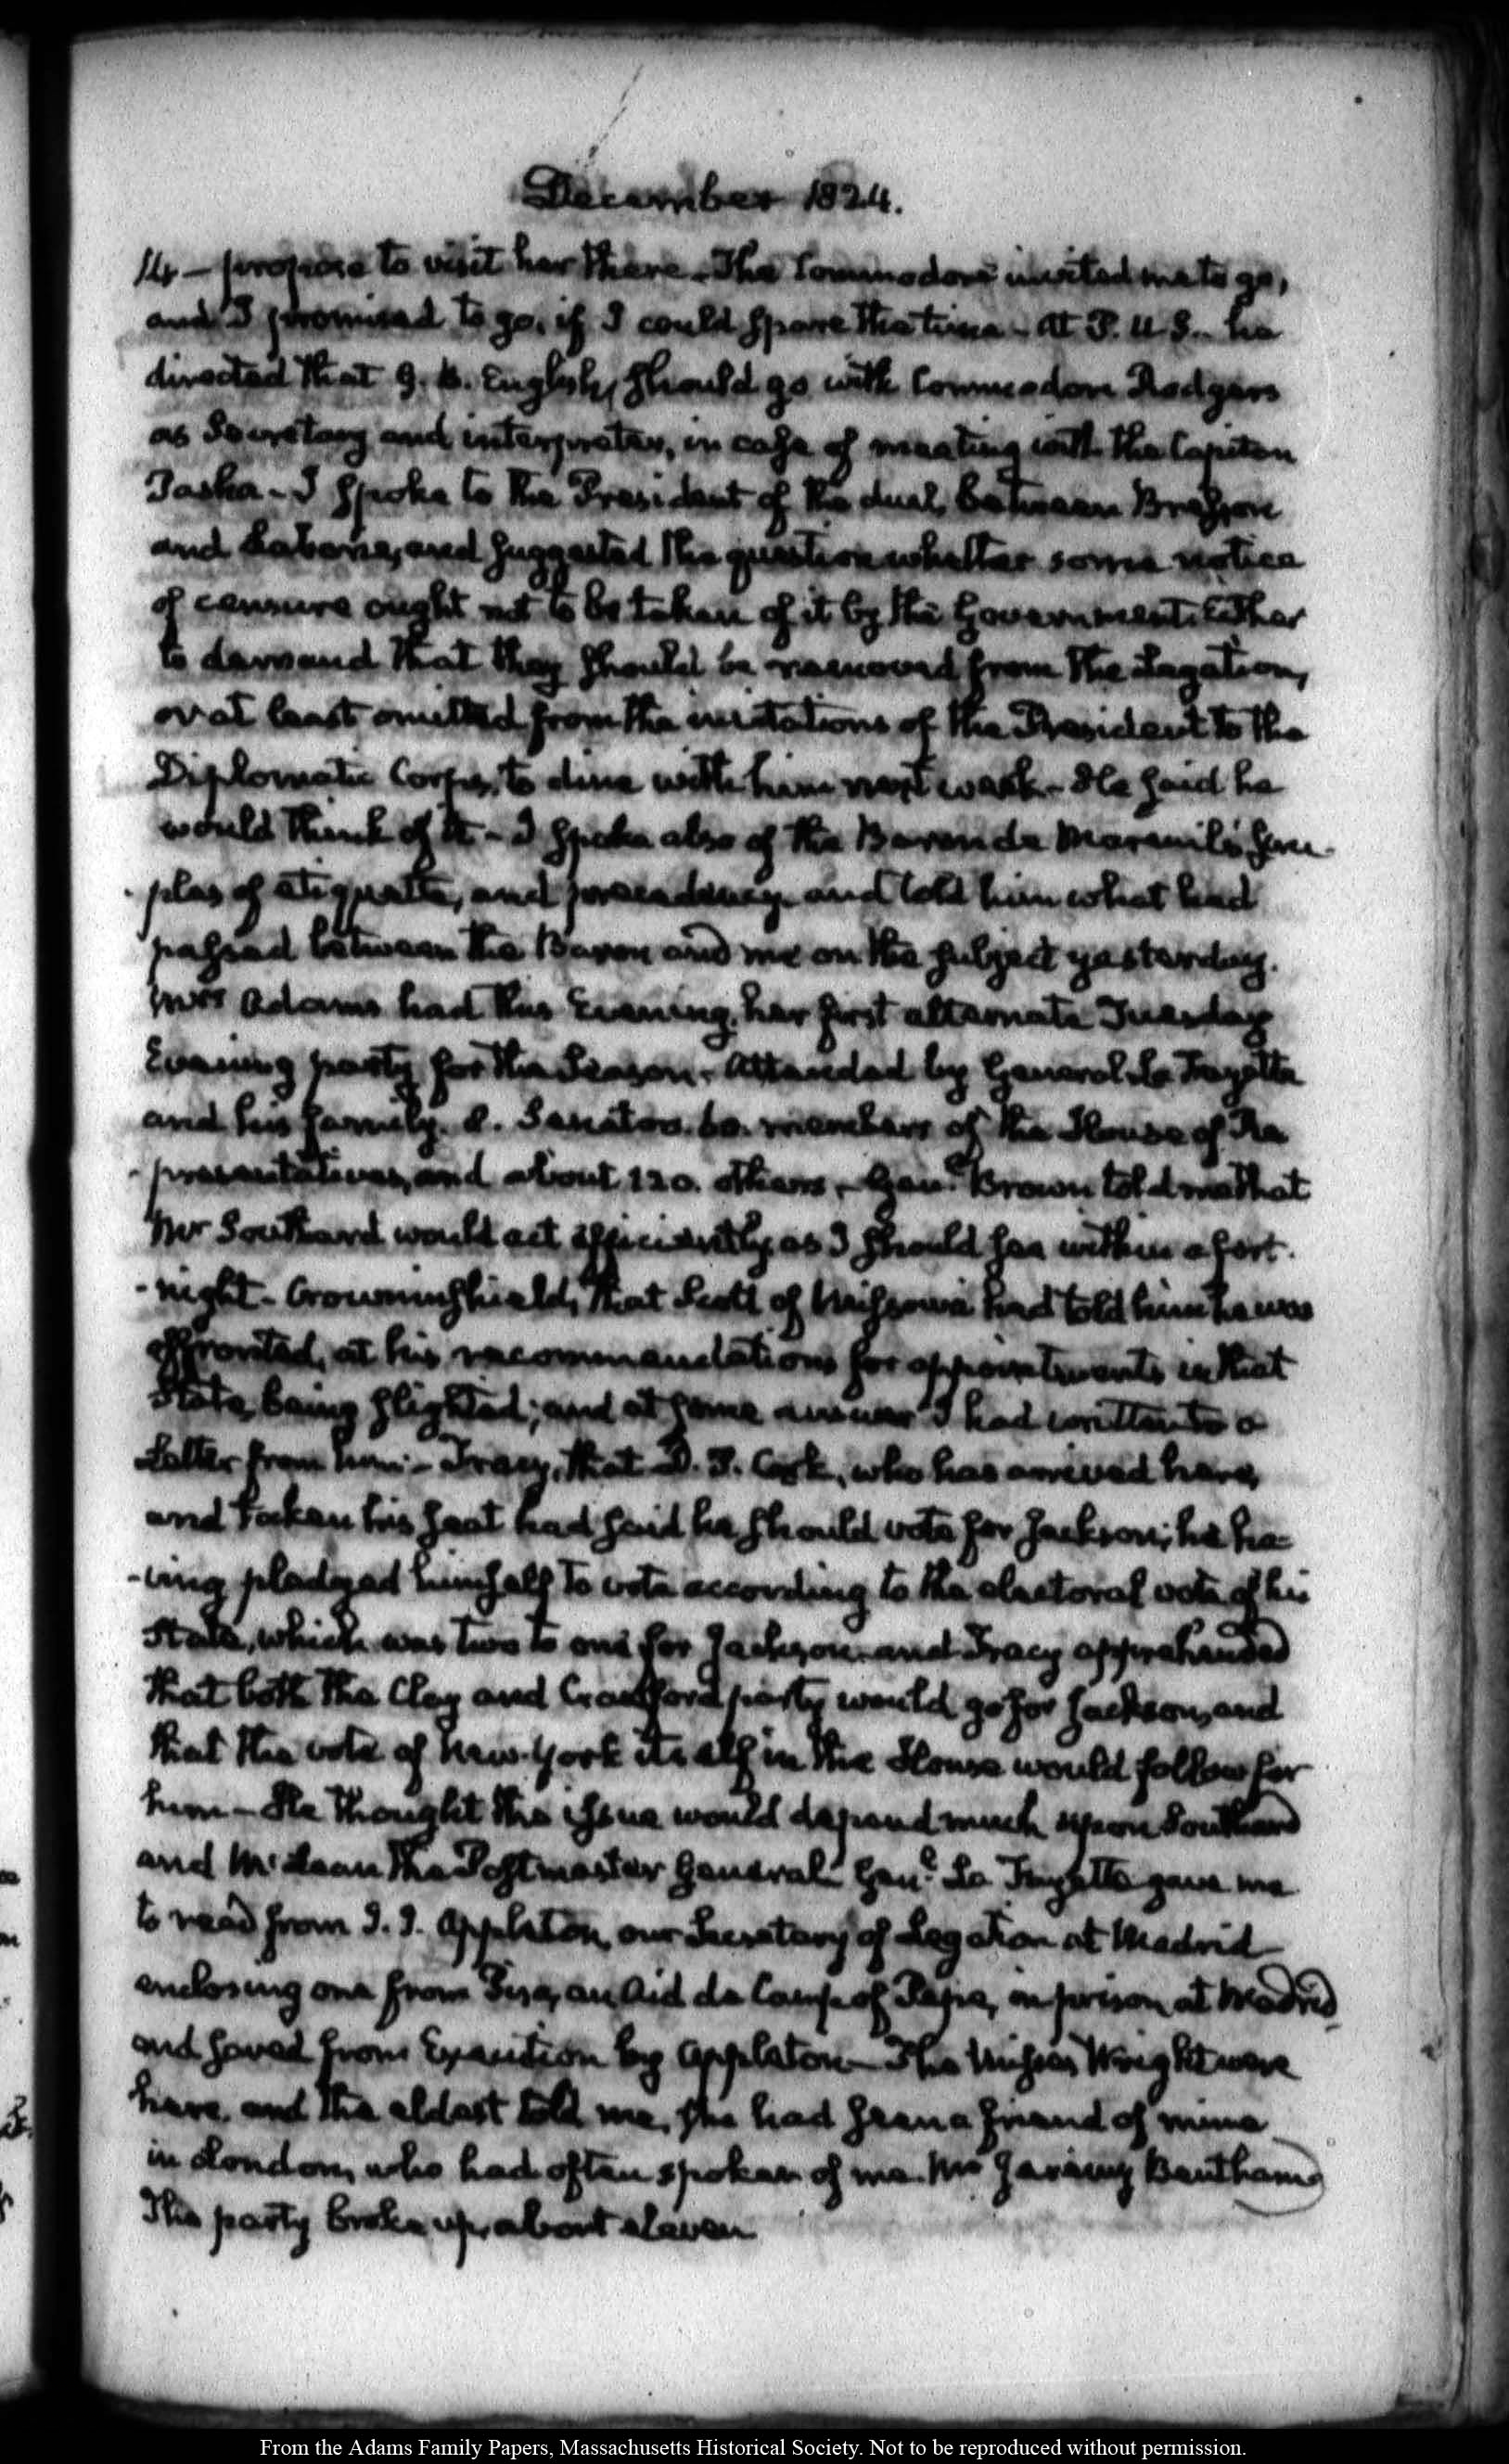 December 1824.
14 — propose to visit her there. The Commodore invited me to go,
and I promised to go, if I could spare the time — At P. U S.. he
directed that G. B. English, should go with Commodore Rodgers
as Secretary and interpreter, in case of meeting with the Capitan
Pasha — I spoke to the President of the duel, between Bresson
and Laborie, and suggested the question whether some notice
of censure ought not to be taken of it by the Government. Either
to demand that they should be removed from the Legation,
or at least omitted from the invitations of the President to the
Diplomatic Corps, to dine with him next week — He said he
would think of it — I spoke also of the Baron de Mareuil's scru-
-ples of etiquette, and precedency and told him what had
passed between the Baron and me on the subject yesterday.
Mrs Adams had this Evening, her first alternate Tuesday
Evening party for the Season. Attended by General La Fayette
and his family. 8. Senators. 60. members of the House of Re
-presentatives, and about 120. others, — Genl. Brown told me that
Mr Southard would act efficiently as I should see within a fort-
-night — Crowninshield, that Scott of Missouri had told him he was
affronted, at his recommendations for appointments in that
State, being slighted; and at some answer I had written to a
Letter from him — Tracy, that D. P. Cook, who has arrived here,
and taken his seat had said he should vote for Jackson; he ha-
-ving pledged himself to vote according to the electoral vote of his
State, which was two to one for Jackson and Tracy apprehended
that both the Clay and Crawford party would go for Jackson, and
that the vote of New-York itself in the House would follow for
him — He thought the issue would depend much upon Southard
and McLean the Postmaster General Genl. La Fayette gave me
to read from J. J. Appleton, our Secretary of Legation at Madrid
enclosing one from Pisa, an Aid de Camp of Pepe, in prison at Madrid
and saved from Execution by Appleton — The Misses Wright were
here, and the eldest told me, she had seen a friend of mine
in London, who had often spoken of me. Mr Jeremy Bentham
The party broke up, about eleven
From the Adams Family Papers, Massachusetts Historical Society. Not to be reproduced without permission.